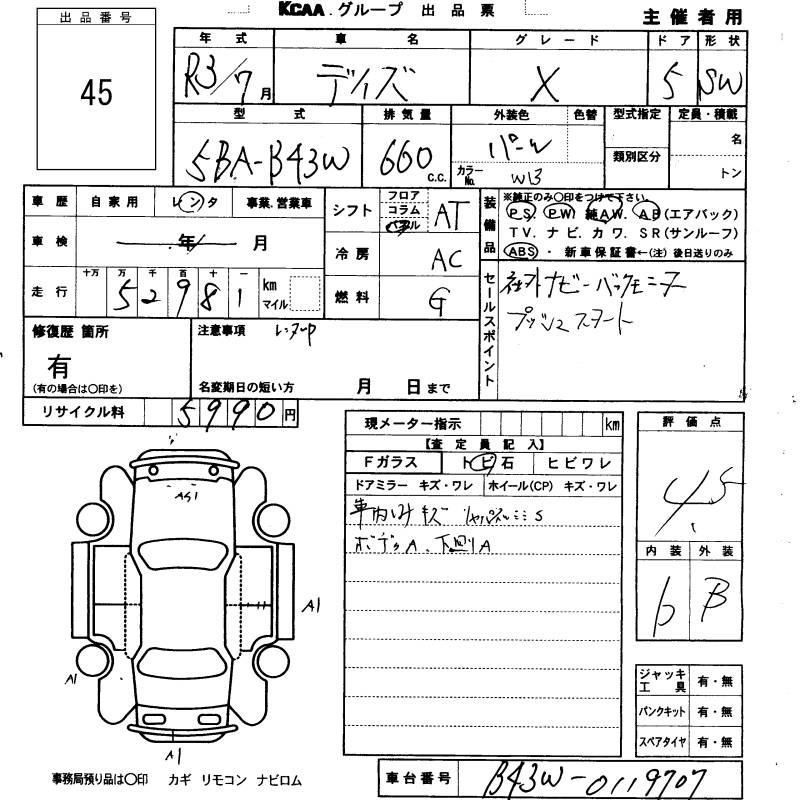 KCAA グループ 出品票
主催者用
出品番号
45
年式 車名 グレード ドア 形状
R3/7月 デイズ X 5 SW
型式 排気量 外装色 色替 型式指定 定員・積載
5BA-B43W 660 C.C. パール 名
カラーNo. W13 類別区分 トン
車歴 自家用 レンタ 事業.営業車
車検 年 月
走行 十万 万 千 百 十 一
5 2 9 8 1 km マイル
シフト フロア コラム パネル AT
冷房 AC
燃料 G
装備品
※純正のみ〇印をつけて下さい。
PS PW 純AW. AB(エアバック)
TV. ナビ. カワ. SR(サンルーフ)
ABS ・ 新車保証書←(注) 後日送りのみ
セールスポイント
社外ナビ バックモニター
プッシュスタート
修復歴 箇所
有
(有の場合は〇印を)
注意事項 レンタUP
名変期日の短い方 月 日まで
リサイクル料 5990円
現メーター指示 km
【査定員記入】
Fガラス トビ石 ヒビワレ
ドアミラー キズ・ワレ ホイール(CP) キズ・ワレ
車内 キズ S
ボディA、下回りA
評価点
4.5
内装 外装
b B
ジャッキ 工具 有・無
パンクキット 有・無
スペアタイヤ 有・無
AS1
A1
A1
A1
事務局預り品は〇印 カギ リモコン ナビロム
車台番号 B43W-0119707